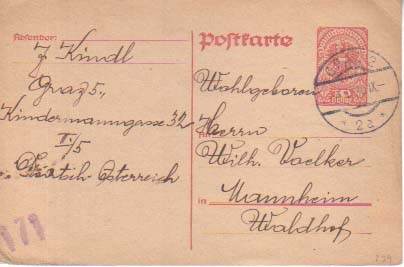 Absender:
J Kindl
Graz 5,
Kindermanngasse 32
II./5
Österreich
171
Postkarte
Wohlgeboren
Herrn
Wilh. Voelker
in Mannheim
Waldhof
2a